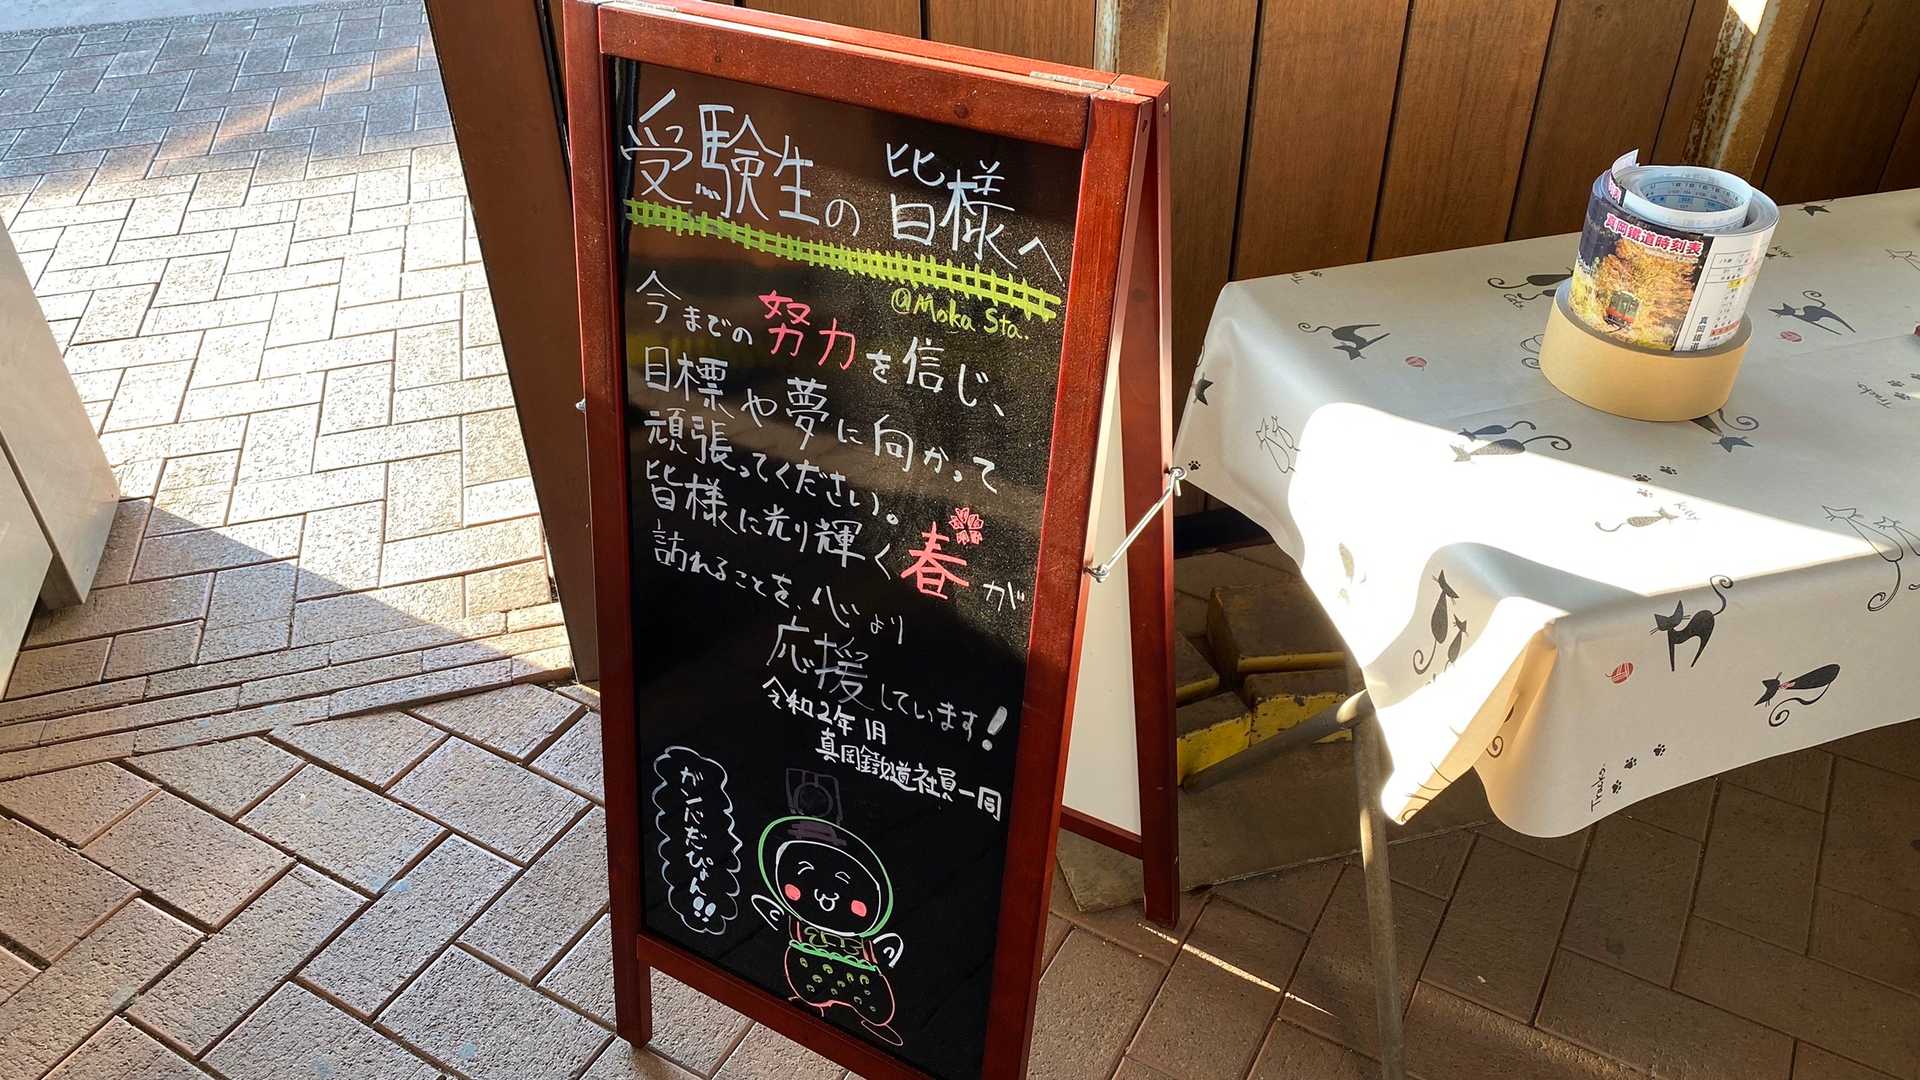 受験生の皆様へ
@Moka Sta.
今までの努力を信じ、
目標や夢に向かって
頑張ってください。
皆様に光り輝く春が
訪れることを、心より
応援しています!
令和2年1月
真岡鐵道社員一同
ガンバだぴょん!!
真岡鐵道時刻表
真岡鐵道
Cats
Kitty
Tracks
Tracks